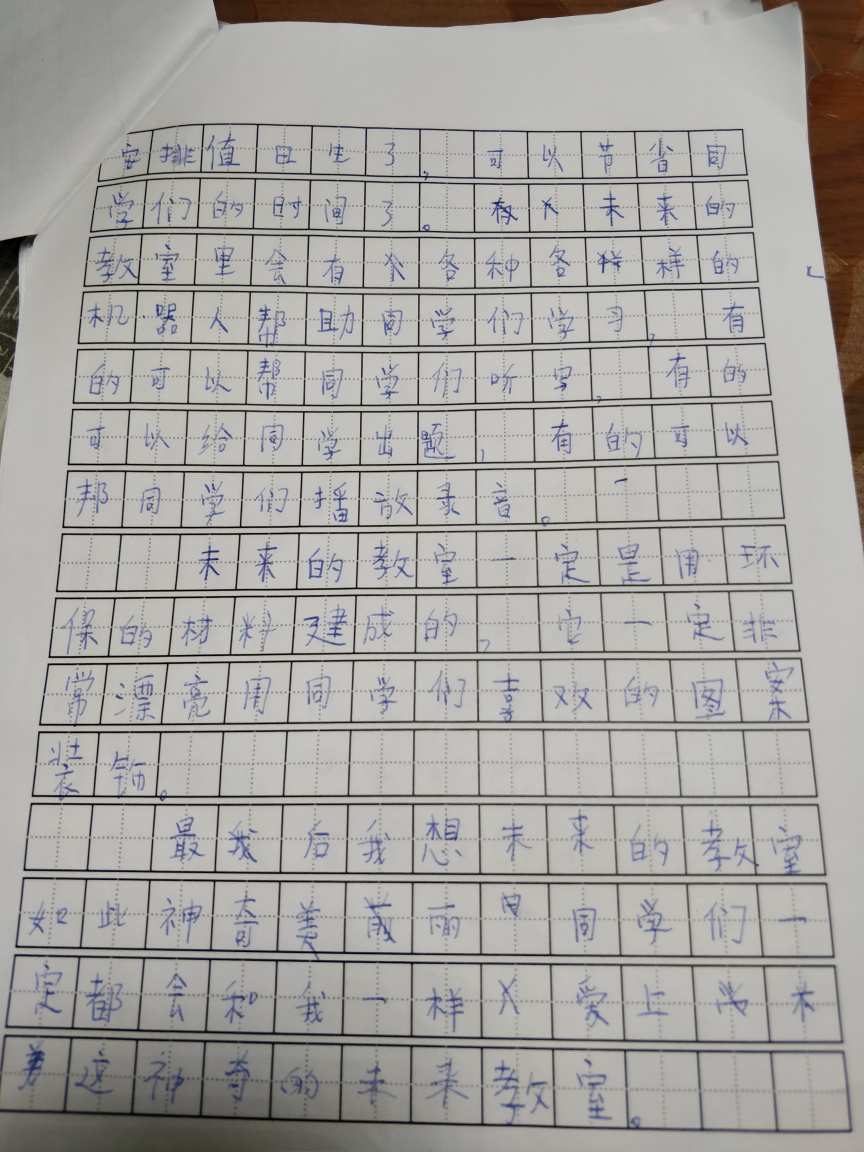 安排值日生了,可以节省同
学们的时间了。未来的
教室里会有各种各样的
机器人帮助同学们学习,有
的可以帮同学们听写,有的
可以给同学出题,有的可以
邦同学们播放录音。
未来的教室一定是用环
保的材料建成的,它一定非
常漂亮用同学们喜欢的图案
装饰。
最后我想未来的教室
如此神奇美丽同学们一
定都会和我一样爱上
这神奇的未来教室。